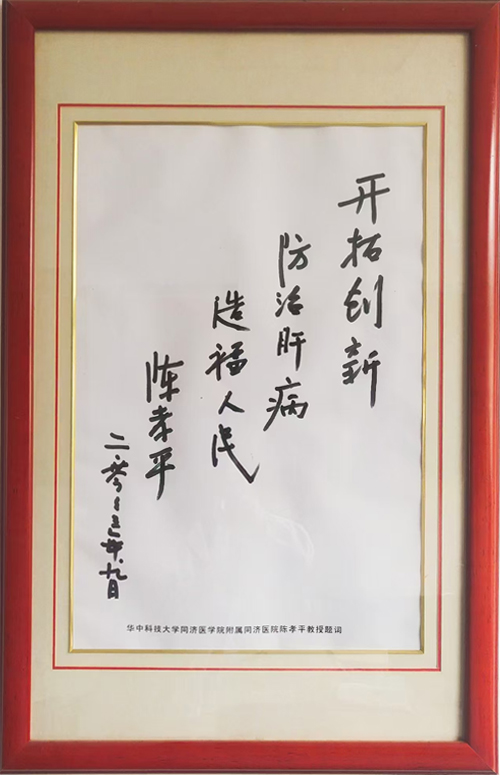 开拓创新
防治肝病
造福人民
陈孝平
二零一三年九月
华中科技大学同济医学院附属同济医院陈孝平教授题词